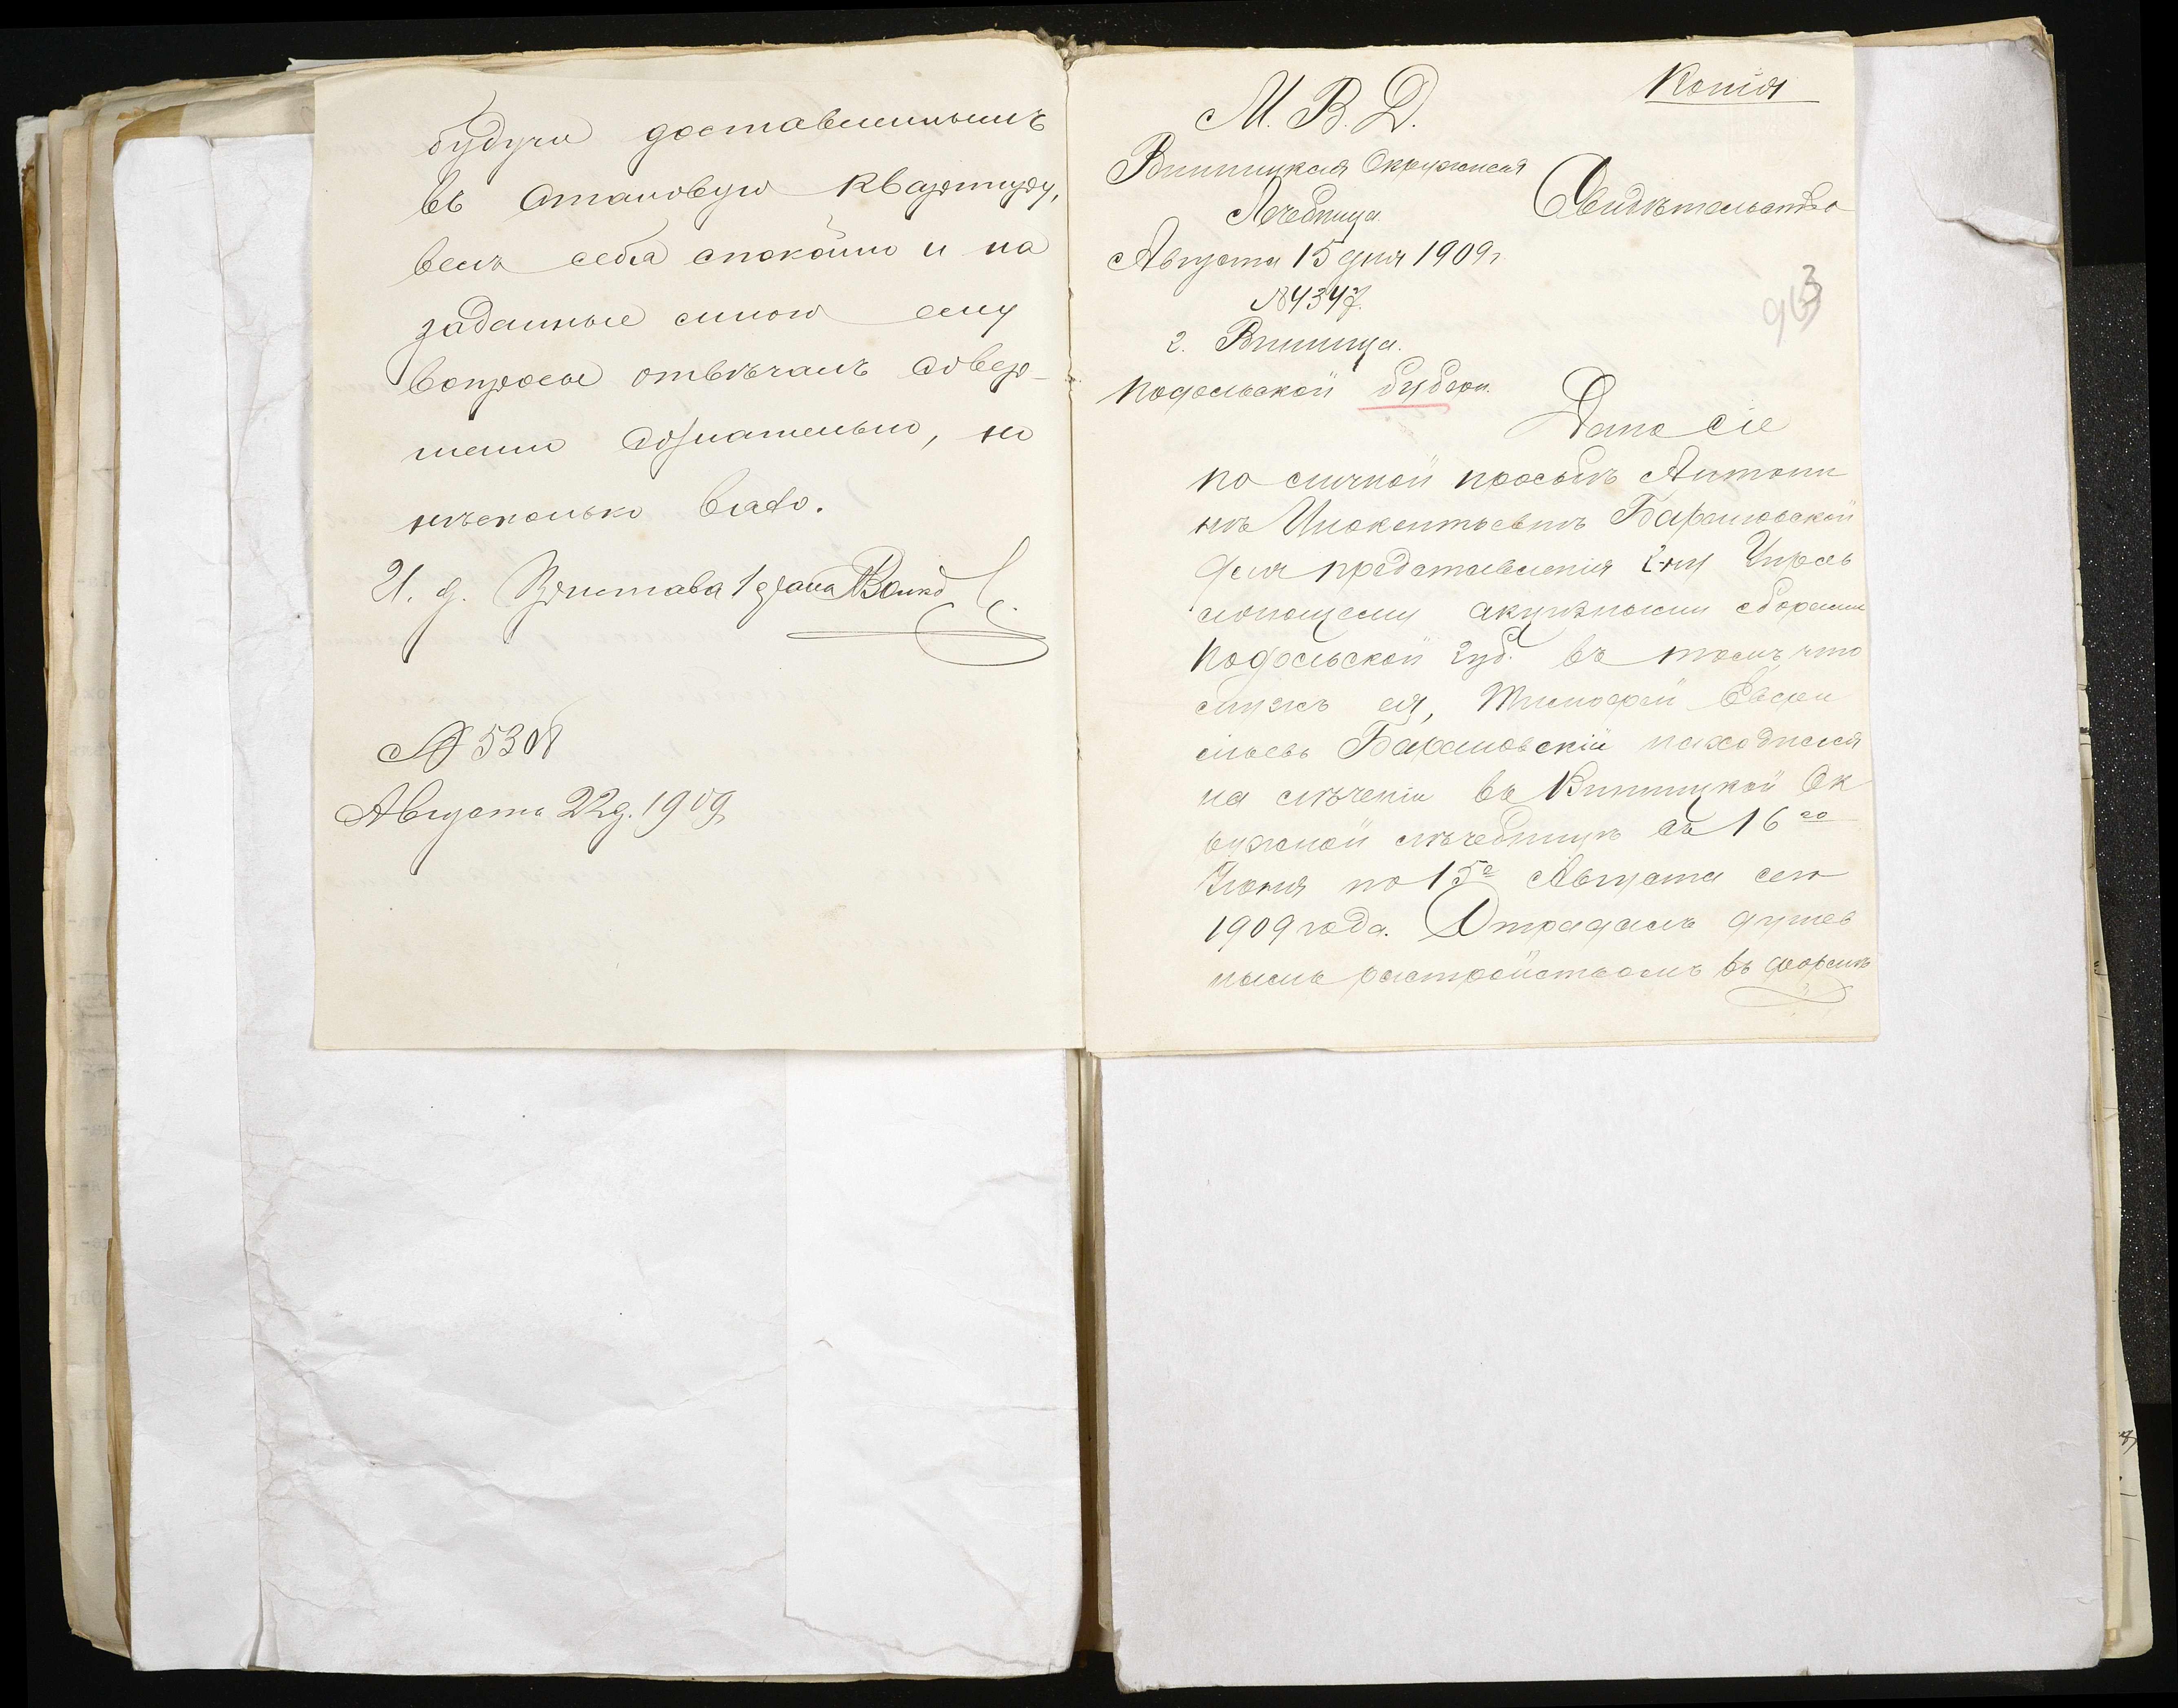 будучи доставленнымъ
въ Становую квартиру,
велъ себя спокойно и на
заданные мною ему
вопросы отвѣчалъ совер-
шенно сознательно, но
нѣсколько вяло.
И. д. Пристава 1 стана
№ 5308
Августа 22 д. 1909
Копія
М. В. Д.
Винницкая Окружная
Лечебница
Свидѣтельство
Августа 15 дня 1909 г
№ 4347.
963
г. Винница.
Подольской Губерн.
Дано сіе
по личной просьбѣ Антони
нѣ Инокентьевнѣ Барановской
для представленія 2-му
акцизными сборами
Подольской губ. въ томъ, что
мужъ ея, Тимофей
Барановскій находился
на лѣченіи въ Винницкой Ок
ружной лѣчебницѣ съ 16 го
Іюня по 15 е Августа сего
1909 года. Страдалъ душев
нымъ растройствомъ въ формѣ